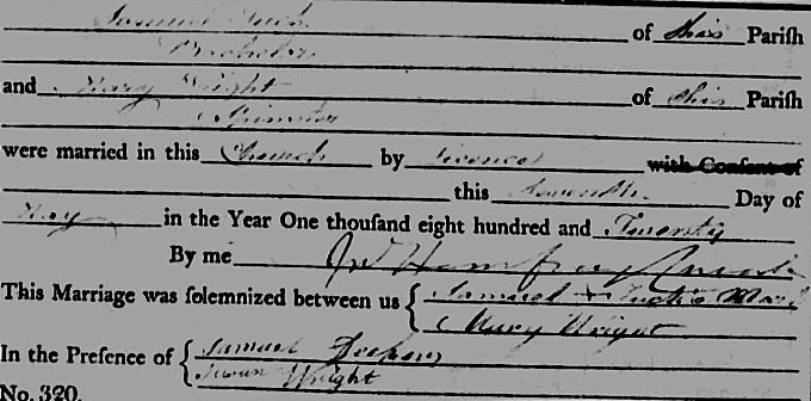 Samuel of this Pariſh
Bachelor
and Mary Wright of this Pariſh
Spinster
were married in this Church by Licence with Conſent of
this Day of
May in the Year One thouſand eight hundred and Twenty
By me
This Marriage was ſolemnized between us { Samuel + Mark
Mary Wright
In the Preſence of { Samuel
Susan Wright
No. 320.